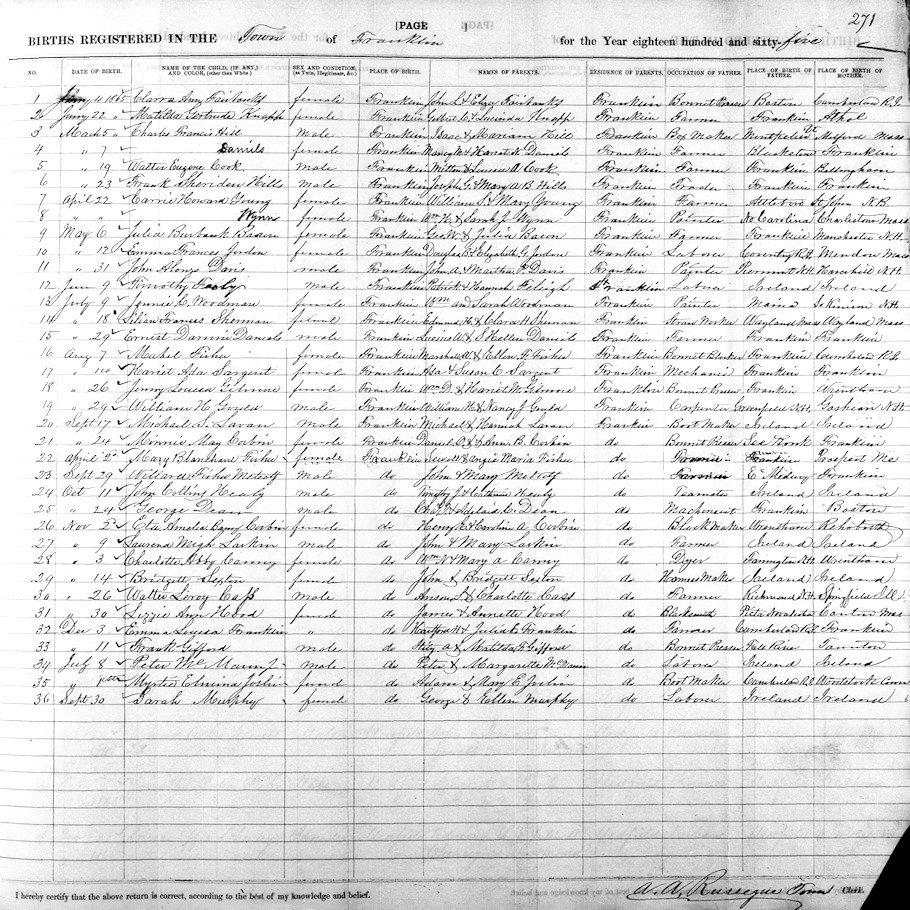 271
[PAGE ]
BIRTHS REGISTERED IN THE Town of Franklin for the Year eighteen hundred and sixty-five
NO. DATE OF BIRTH. NAME OF THE CHILD, (IF ANY,) AND COLOR, (other than White.) SEX AND CONDITION, (as Twin, Illegitimate, &c.) PLACE OF BIRTH. NAMES OF PARENTS. RESIDENCE OF PARENTS. OCCUPATION OF FATHER. PLACE OF BIRTH OF FATHER. PLACE OF BIRTH OF MOTHER.
1 4 1865 Clarra Ann Fairbanks female Franklin John & Eliza Fairbanks Franklin Bonnet Presser Boston Cumberland R.I.
2 22 Matilda Gertrude Knapp female Franklin Gilbert C & Lucinda Knapp Franklin Farmer Franklin Athol
3 March 5 Charles Francis Hill Male Franklin Isaac & Mariam Hill Franklin Box Maker Montpelier Vt Milford Mass
4 " 7 Daniels female Franklin & Harriet Daniels Franklin Farmer Blackstone Franklin
5 " 19 Walter Eugene Cook male Franklin Milton & A. Cook Franklin Farmer Franklin Bellingham
6 " 23 Frank Sheridan Hills male Franklin Joseph G. & Mary A B Hills Franklin Trader Franklin Franklin
7 April 22 Carrie Howard Young female Franklin William S. & Mary Young Franklin Farmer Attleboro St John N.B
8 " " Wynn female Franklin Wm H. & Sarah J. Wynn Franklin Painter No Carolina Charlestown Mass
9 May 6 Julia Burbank Bacon female Franklin Geo W. & Julia Bacon Franklin Farmer Franklin Manchester N.H.
10 " 12 Emma Frances Jordon female Franklin Douglas & Elizabeth G. Jordon Franklin Laborer Coventry R.I. Mendon Mass
11 " 31 John Alonzo Davis male Franklin John A. & Martha F. Davis Franklin Painter N.H. Haverhill N.H.
12 June 9 Timothy male Franklin Patrick & Hannah Franklin Laborer Ireland Ireland
13 July 9 Jennie C. Woodman female Franklin Wm and Sarah Woodman Franklin Painter Maine N.H.
14 " 18 Lilian Frances Sherman female Franklin Edmund & Clara H Sherman Franklin Straw Worker Wayland Mass Wayland Mass
15 " 29 Ernest Daniels male Franklin & Ellen Daniels Franklin Farmer Franklin Franklin
16 Aug 7 Mabel Fisher female Franklin Marshall & Ellen F. Fisher Franklin Bonnet Blocker Franklin Cumberland R.I.
17 " 14 Hariet Ida Sargent female Franklin & Susan C Sargent Franklin Mechanic Franklin Franklin
18 " 26 Jenny Louisa Gilmore female Franklin Wm D. & Harriet M. Gilmore Franklin Bonnet Presser Franklin Wrentham
19 " 29 William H Gould male Franklin William H & Nancy J Gould Franklin Carpenter Greenfield N.H. Goshen N.H.
20 Sept 17 Michael S. Lavan male Franklin Michael & Hannah Lavan Franklin Boot Maker Ireland Ireland
21 " 24 Minnie May Corbin female Franklin Daniel & Ann B. Corbin do Bonnet Presser Franklin
22 April 2 Mary Blanchard Fisher female Franklin Sewell & Angie Maria Fisher do Prospect Me
23 Sept 29 Willard Fisher Metcalf male do John & Mary Metcalf do Farmer E. Medway Franklin
24 Oct 11 John Collins Healy male do Timothy J. & Catharine Healy do Teamster Ireland Ireland
25 " 24 George Dean male do Chas & Adelaid C. Dean do Machinist Franklin Boston
26 Nov 5 Eta Amelia Corbin female do Henry & Caroline A. Corbin do Block maker Wrentham Rehoboth
27 " 9 Laurend Migh Larkin male do John & Mary Larkin do Farmer Ireland Ireland
28 " 3 Charlotte Abby Canny female do Wm & Mary A Canny do Dyer Wrentham
29 " 14 Bridgett Sexton female do John & Bridgett Sexton do Harness Maker Ireland Ireland
30 " 26 Walter Leroy Cass male do Anson & Charlotte Cass do Farmer Richmond N.H. Springfield Ill
31 " 30 Lizzie Ann Hood female do James & Annette Hood do Blacksmith Canton Mas
32 Dec 3 Emma Louisa Franklin " do Hartford & Julia E Franklin do Farmer Cumberland R.I Franklin
33 " 11 Frank Gifford male do & Matilda H Gifford do Bonnet Presser Taunton
34 July 8 Peter male do Peter & Margarette do Laborer Ireland Ireland
35 Myrtie Edmina female do Adam & Mary E. do Boot Maker Cumberland R.I Woodstock Conn
36 Sept 30 Sarah Murphy female do George & Ellen Murphy do Laborer Ireland Ireland
I hereby certify that the above return is correct, according to the best of my knowledge and belief. A. A. Russegue Town Clerk.